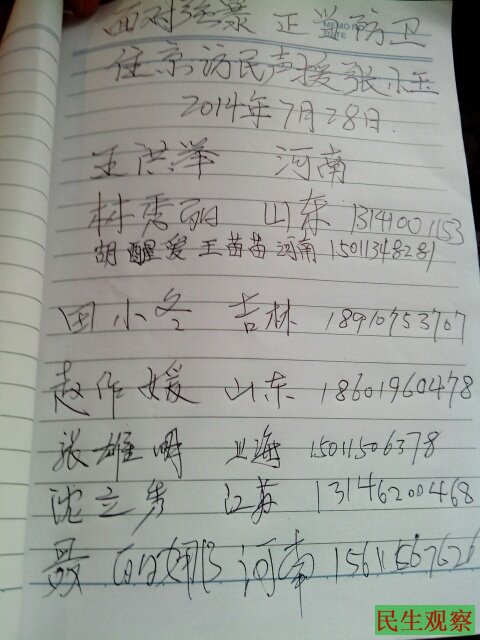 面对强暴 正当防卫
MEMO
DATE
住京访民声援张小玉
2014年7月28日.
王洪举 河南
林秀丽 山东 13141001153
胡醒爱 王苗苗 河南 15011348281
田小冬 吉林 18910753707
赵作媛 山东 18601960478
张雄明 上海 15011506378
沈立秀 江苏 13146200468
聂 娜 河南 15611567626
民生观察